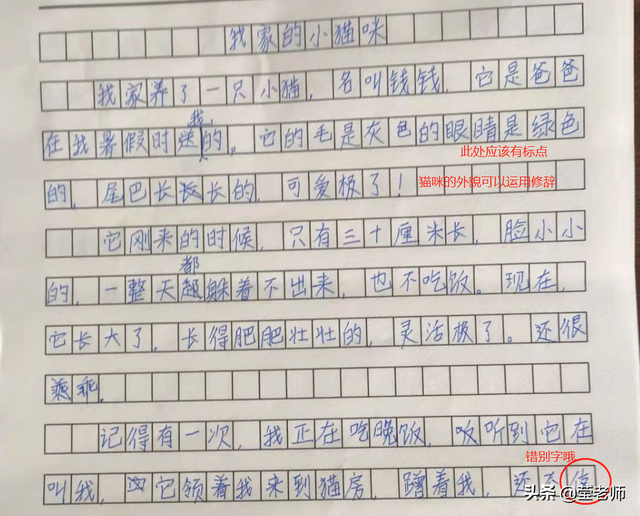 我家的小猫咪
我家养了一只小猫，名叫钱钱，它是爸爸
我
在我暑假时送的。它的毛是灰色的眼睛是绿色
此处应该有标点
的，尾巴长长的，可爱极了！
猫咪的外貌可以运用修辞
它刚来的时候，只有三十厘米长，脸小小
都
的，一整天躲着不出来，也不吃饭。现在，
它长大了，长得肥肥壮壮的，灵活极了。还很
乖乖，
记得有一次，我正在吃晚饭，听到它在
错别字哦
叫我，它领着我来到猫房，蹭着我，还不停
头条 @堂老师